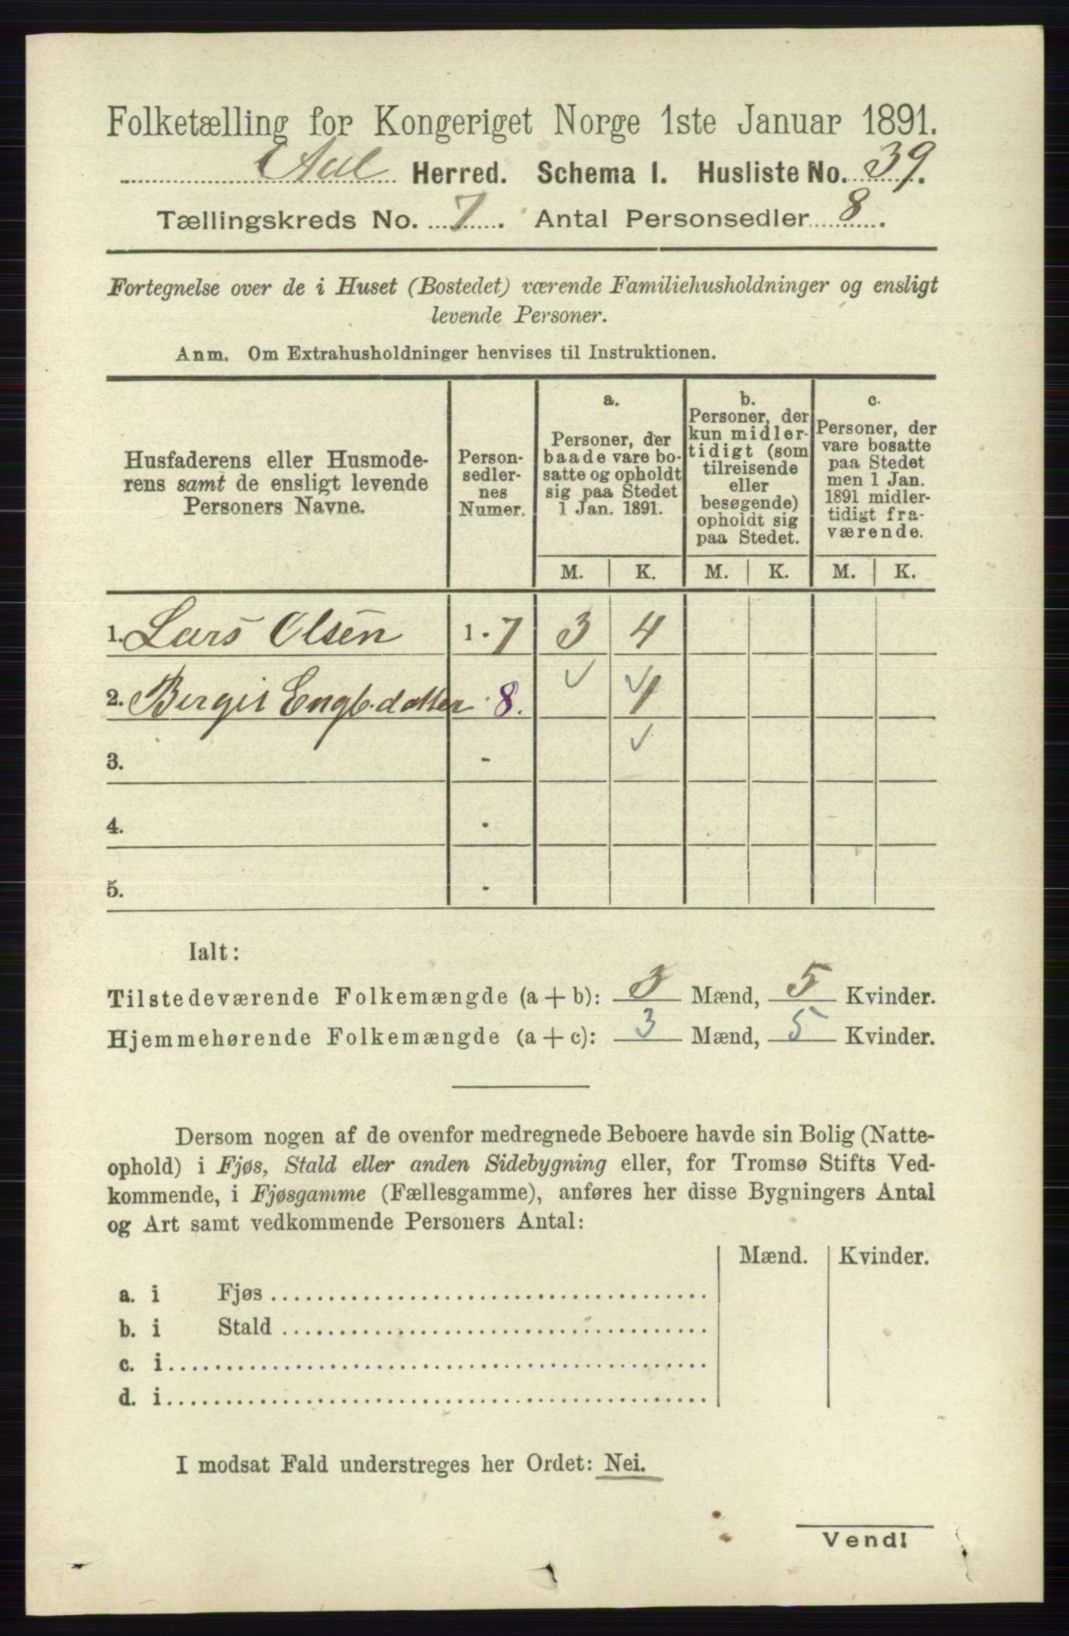 Folketælling for Kongeriget Norge 1ste Januar 1891.
Aal Herred. Schema I. Husliste No. 39.
Tællingskreds No. 7. Antal Personsedler 8.
Fortegnelse over de i Huset (Bostedet) værende Familiehusholdninger og ensligt
levende Personer.
Anm. Om Extrahusholdninger henvises til Instruktionen.
Husfaderens eller Husmode-
rens samt de ensligt levende
Personers Navne.
Person-
sedler-
nes
Numer.
a.
Personer, der
baade vare bo-
satte og opholdt
sig paa Stedet
1 Jan. 1891.
b.
Personer, der
kun midler-
tidigt (som
tilreisende
eller
besøgende)
opholdt sig
paa Stedet.
c.
Personer, der
vare bosatte
paa Stedet
men 1 Jan.
1891 midler-
tidigt fra-
værende.
M. K. M. K. M. K.
1. Lars Olsen 1-7 3 4
2. Bergit Engb.datter 8. 1
3. -
4. -
5. -
Ialt:
Tilstedeværende Folkemængde (a + b): 3 Mænd, 5 Kvinder.
Hjemmehørende Folkemængde (a + c): 3 Mænd, 5 Kvinder.
Dersom nogen af de ovenfor medregnede Beboere havde sin Bolig (Natte-
ophold) i Fjøs, Stald eller anden Sidebygning eller, for Tromsø Stifts Ved-
kommende, i Fjøsgamme (Fællesgamme), anføres her disse Bygningers Antal
og Art samt vedkommende Personers Antal:
Mænd. Kvinder.
a. i Fjøs
b. i Stald
c. i
d. i
I modsat Fald understreges her Ordet: Nei.
Vend!